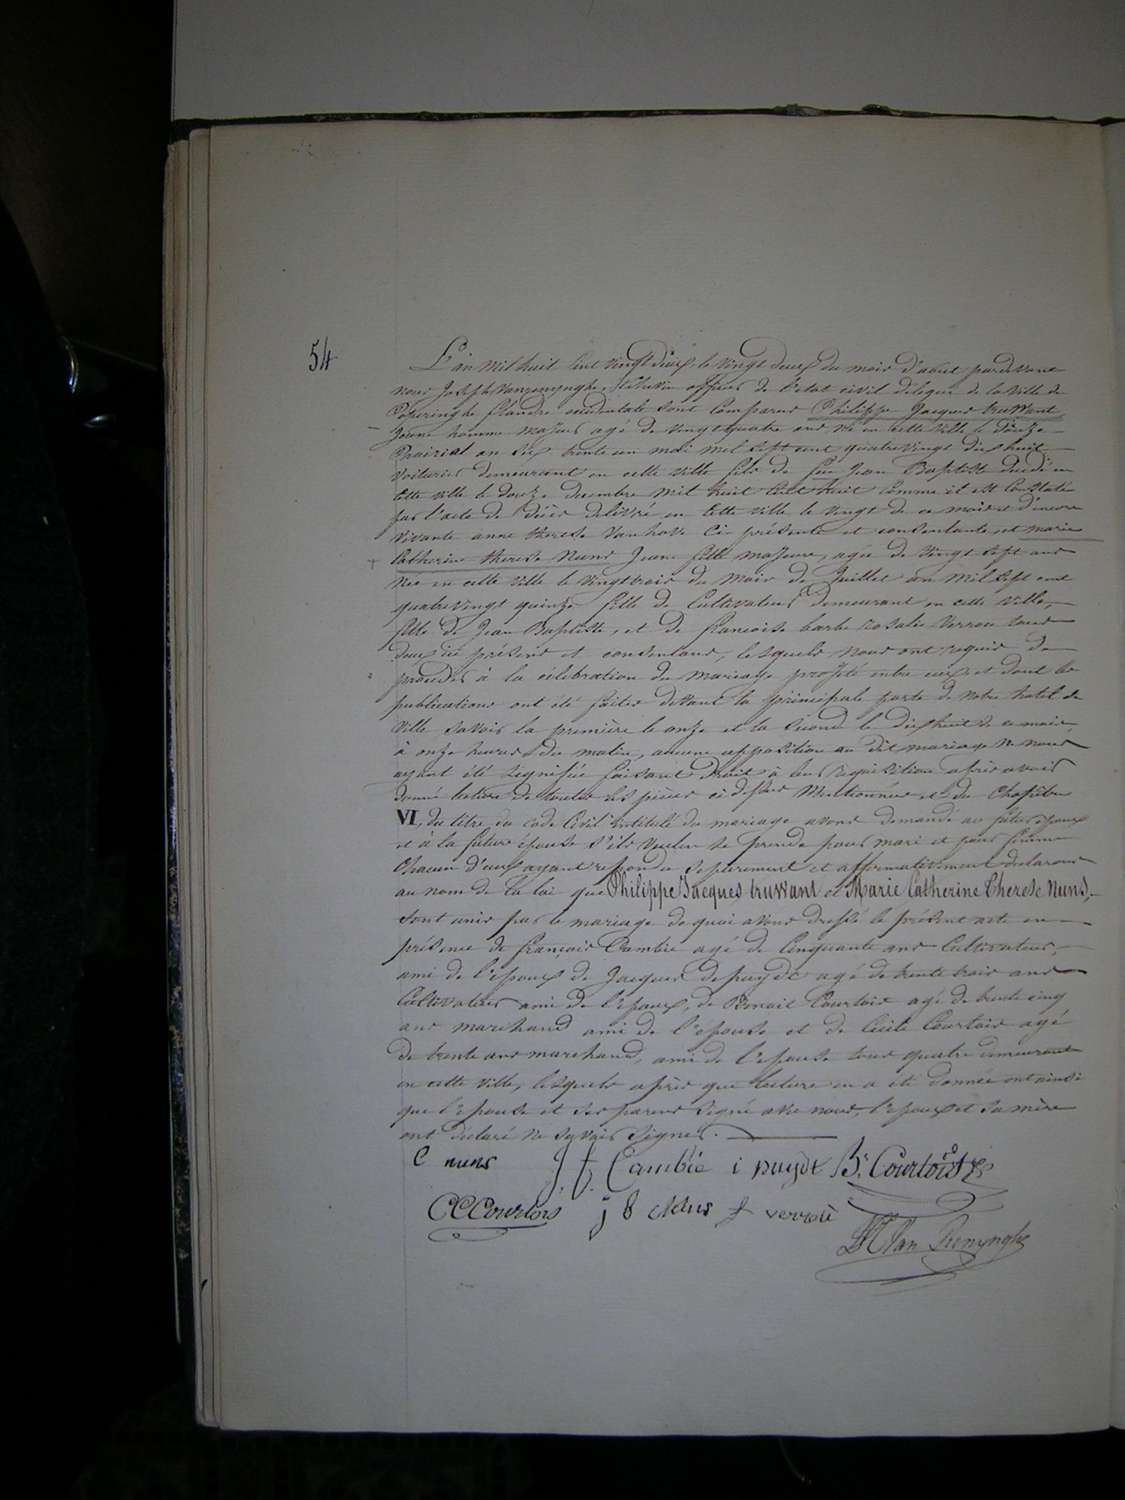 54
L'an mil huit cent vingt deux, le vingt deux du mois d'aout pardevant
nous Joseph Vanrenynghe, Echevin officier de l'etat civil délégué de la ville de
Poperinghe Flandre occidentale sont comparus Philippe Jacques truwant
Jeune homme majeur agé de vingt quatre ans né en cette ville le douze
Prairial an six trente un mai mil sept cent quatre vingt dix huit
voiturier demeurant en cette ville fils de feu Jean Baptiste decédé en
cette ville le douze decembre mil huit cent huit comme il est constaté
par l'acte de décès délivré en cette ville le vingt de ce mois et d'encore
vivante anne therese Vanhove ci présente et consentante, et marie
Catherine therese Nuns Jeune fille majeure, agée de vingt sept ans
née en cette ville le vingt trois du mois de Juillet an mil sept cent
quatre vingt quinze fille de cultivateur demeurant en cette ville,
fille de Jean Baptiste, et de francoise barbe rosalie verrou tous
deux ici présens et consentans, lesquels nous ont requis de
procéder à la célébration du mariage projeté entre eux et dont les
publications ont été faites devant la principale porte de notre hotel de
ville savoir la première le onze et la seconde le dix huit de ce mois,
à onze heures du matin, aucune opposition au dit mariage ne nous
ayant été signifiée faisant droit à leur réquisition après avoir
donné lecture de toutes les pièces ci dessus mentionnées et du chapitre
VI, du titre du code Civil intitulé du mariage avons demandé au futur époux
et à la future épouse s'ils veulent se prendre pour mari et pour femme
chacun d'eux ayant répondu séparement et affirmativement declarons
au nom de la loi que Philippe Jacques truwant et Marie Catherine Therese Nuns,
sont unis par le mariage de quoi avons dressé le présent acte en
présence de françois Cambie agé de cinquante ans cultivateur,
ami de l'epoux de Jacques depuydt agé de trente trois ans
cultivateur ami de l'epoux, de Benoit Courtois agé de trente cinq
ans marchand ami de l'epouse et de Cecile Courtois agé
de trente ans marchand, ami de l'epouse tous quatre demeurant
en cette ville, lesquels après que lecture en a été donnée ont ainsi
que l'epouse et ses parens signé avec nous, l'epoux et sa mère
ont déclaré ne savoir signer.
C nuns J f Cambié i puydt B. Courtois
CC Courtois j B Nuns f verrou
JH Van Renynghe